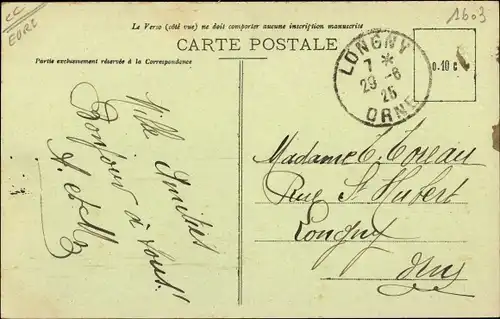 cc
EURE
1603
Le Verso (côté vue) ne doit comporter aucune inscription manuscrite
CARTE POSTALE
Partie exclusivement réservée à la Correspondance
LONGNY
7 *
29 -6
25
ORNE
0.10 c
Mille Amitiés
Bonjour à tous!
A. et M
Madame C. Toreau
Rue St Hubert
Longny